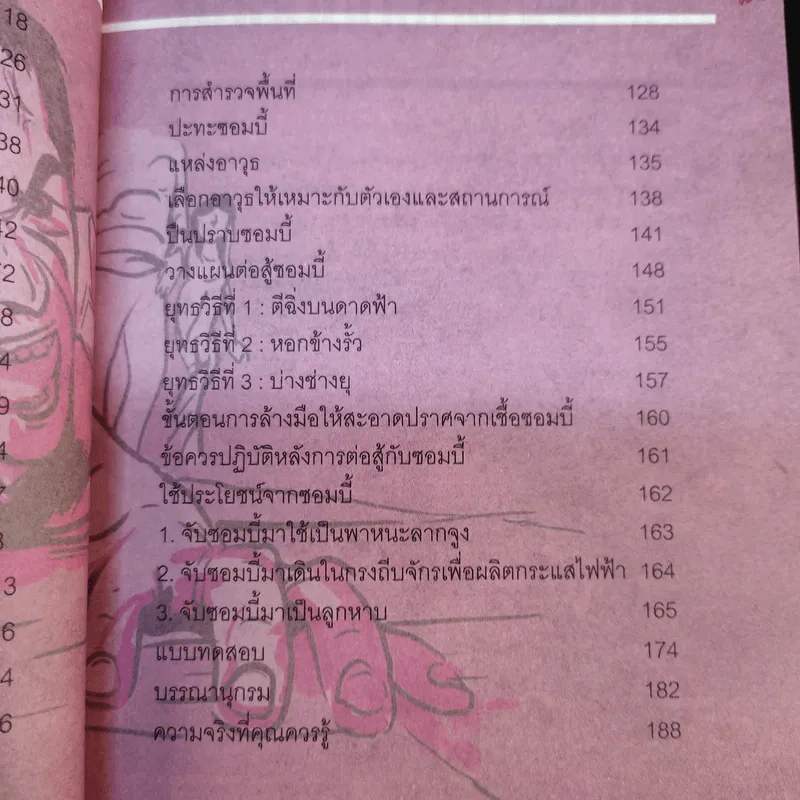 18
26
31
38
40
42
72
8
4
9
4
7
3
3
6
4
6
การสำรวจพื้นที่ 128
ปะทะซอมบี้ 134
แหล่งอาวุธ 135
เลือกอาวุธให้เหมาะกับตัวเองและสถานการณ์ 138
ปืนปราบซอมบี้ 141
วางแผนต่อสู้ซอมบี้ 148
ยุทธวิธีที่ 1 : ตีฉิ่งบนดาดฟ้า 151
ยุทธวิธีที่ 2 : หอกข้างรั้ว 155
ยุทธวิธีที่ 3 : บ่างช่างยุ 157
ขั้นตอนการล้างมือให้สะอาดปราศจากเชื้อซอมบี้ 160
ข้อควรปฏิบัติหลังการต่อสู้กับซอมบี้ 161
ใช้ประโยชน์จากซอมบี้ 162
1. จับซอมบี้มาใช้เป็นพาหนะลากจูง 163
2. จับซอมบี้มาเดินในกรงถีบจักรเพื่อผลิตกระแสไฟฟ้า 164
3. จับซอมบี้มาเป็นลูกหาบ 165
แบบทดสอบ 174
บรรณานุกรม 182
ความจริงที่คุณควรรู้ 188